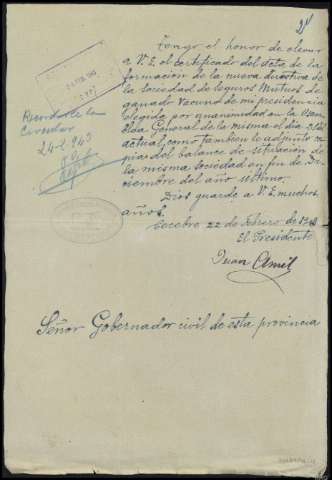 Tengo el honor de elevar
a V.E. el certificado del acta de la
formación de la nueva directiva de
la Sociedad de Seguros Mutuos de
ganado Vacuno de mi presidencia
elegida por unanimidad en la
General de la misma el día
actual, como tambien le adjunto
del balance de situación de
la misma sociedad en fin de Di-
ciembre del año último.
Dios guarde a V.E. muchos
años.
Cecebre 22 de Febrero de 1943
El Presidente
Juan Amil
Señor Gobernador civil de esta provincia
Circular
24-2-943